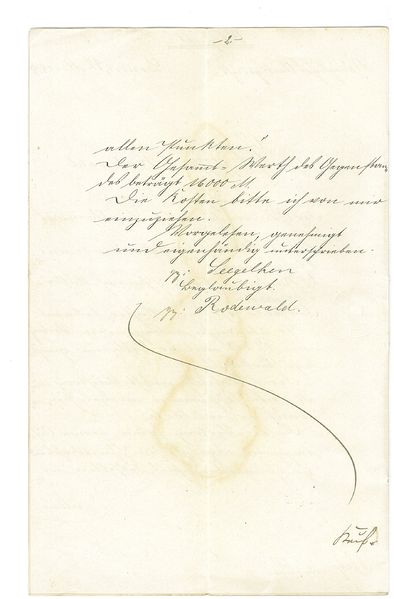 -2-
allen Punkten."
Der Gesammt-Werth des Gegenstan-
des beträgt 16000 M.
Die Kosten bitte ich von mir
einzuziehen.
Vorgelesen, genehmigt
und eigenhändig unterschrieben.
gz: Seegelken
Beglaubigt.
gz: Rodewald.